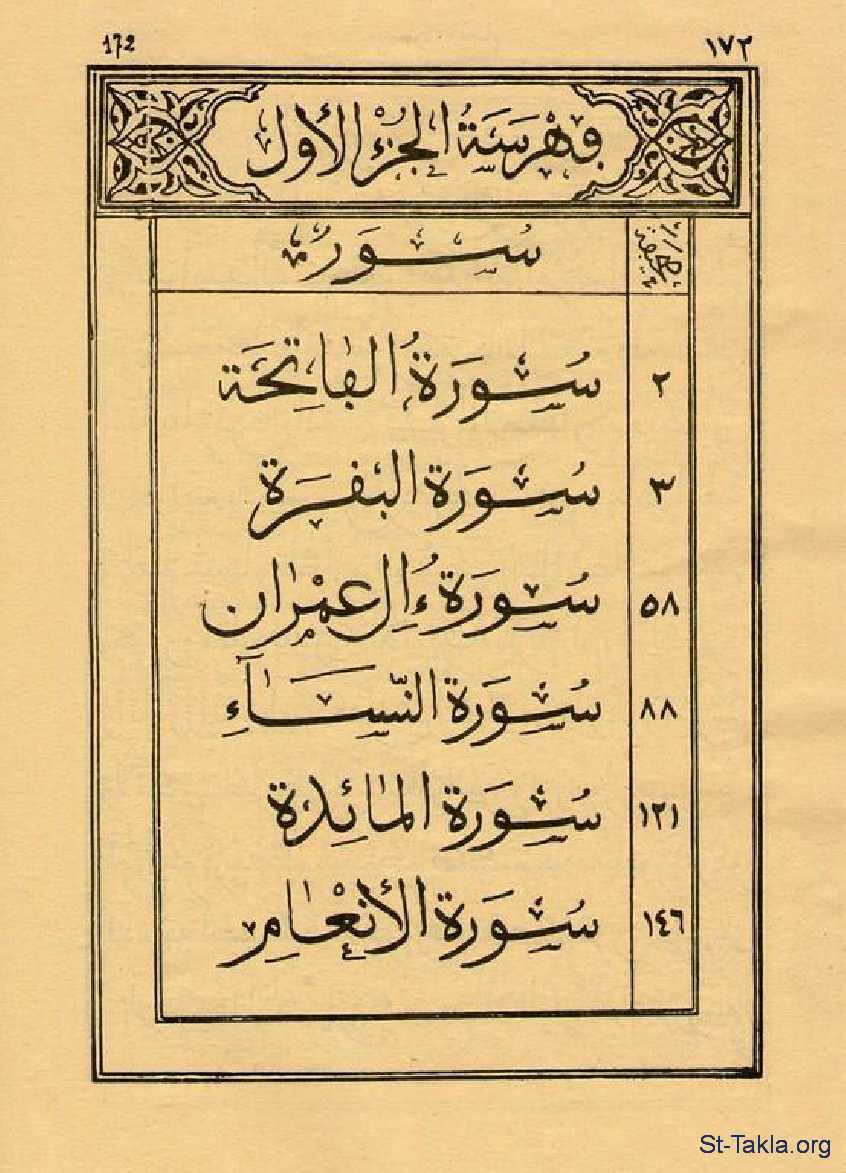 ١٧٢ 172
فهرسة الجزء الأول
صحيفة سورة
٢ سورة الفاتحة
٣ سورة البقرة
٥٨ سورة ءال عمران
٨٨ سورة النساء
١٢١ سورة المائدة
١٤٦ سورة الأنعام
St-Takla.org